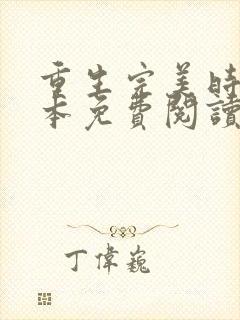 重生完美時
本免費閱讀
丁偉巍